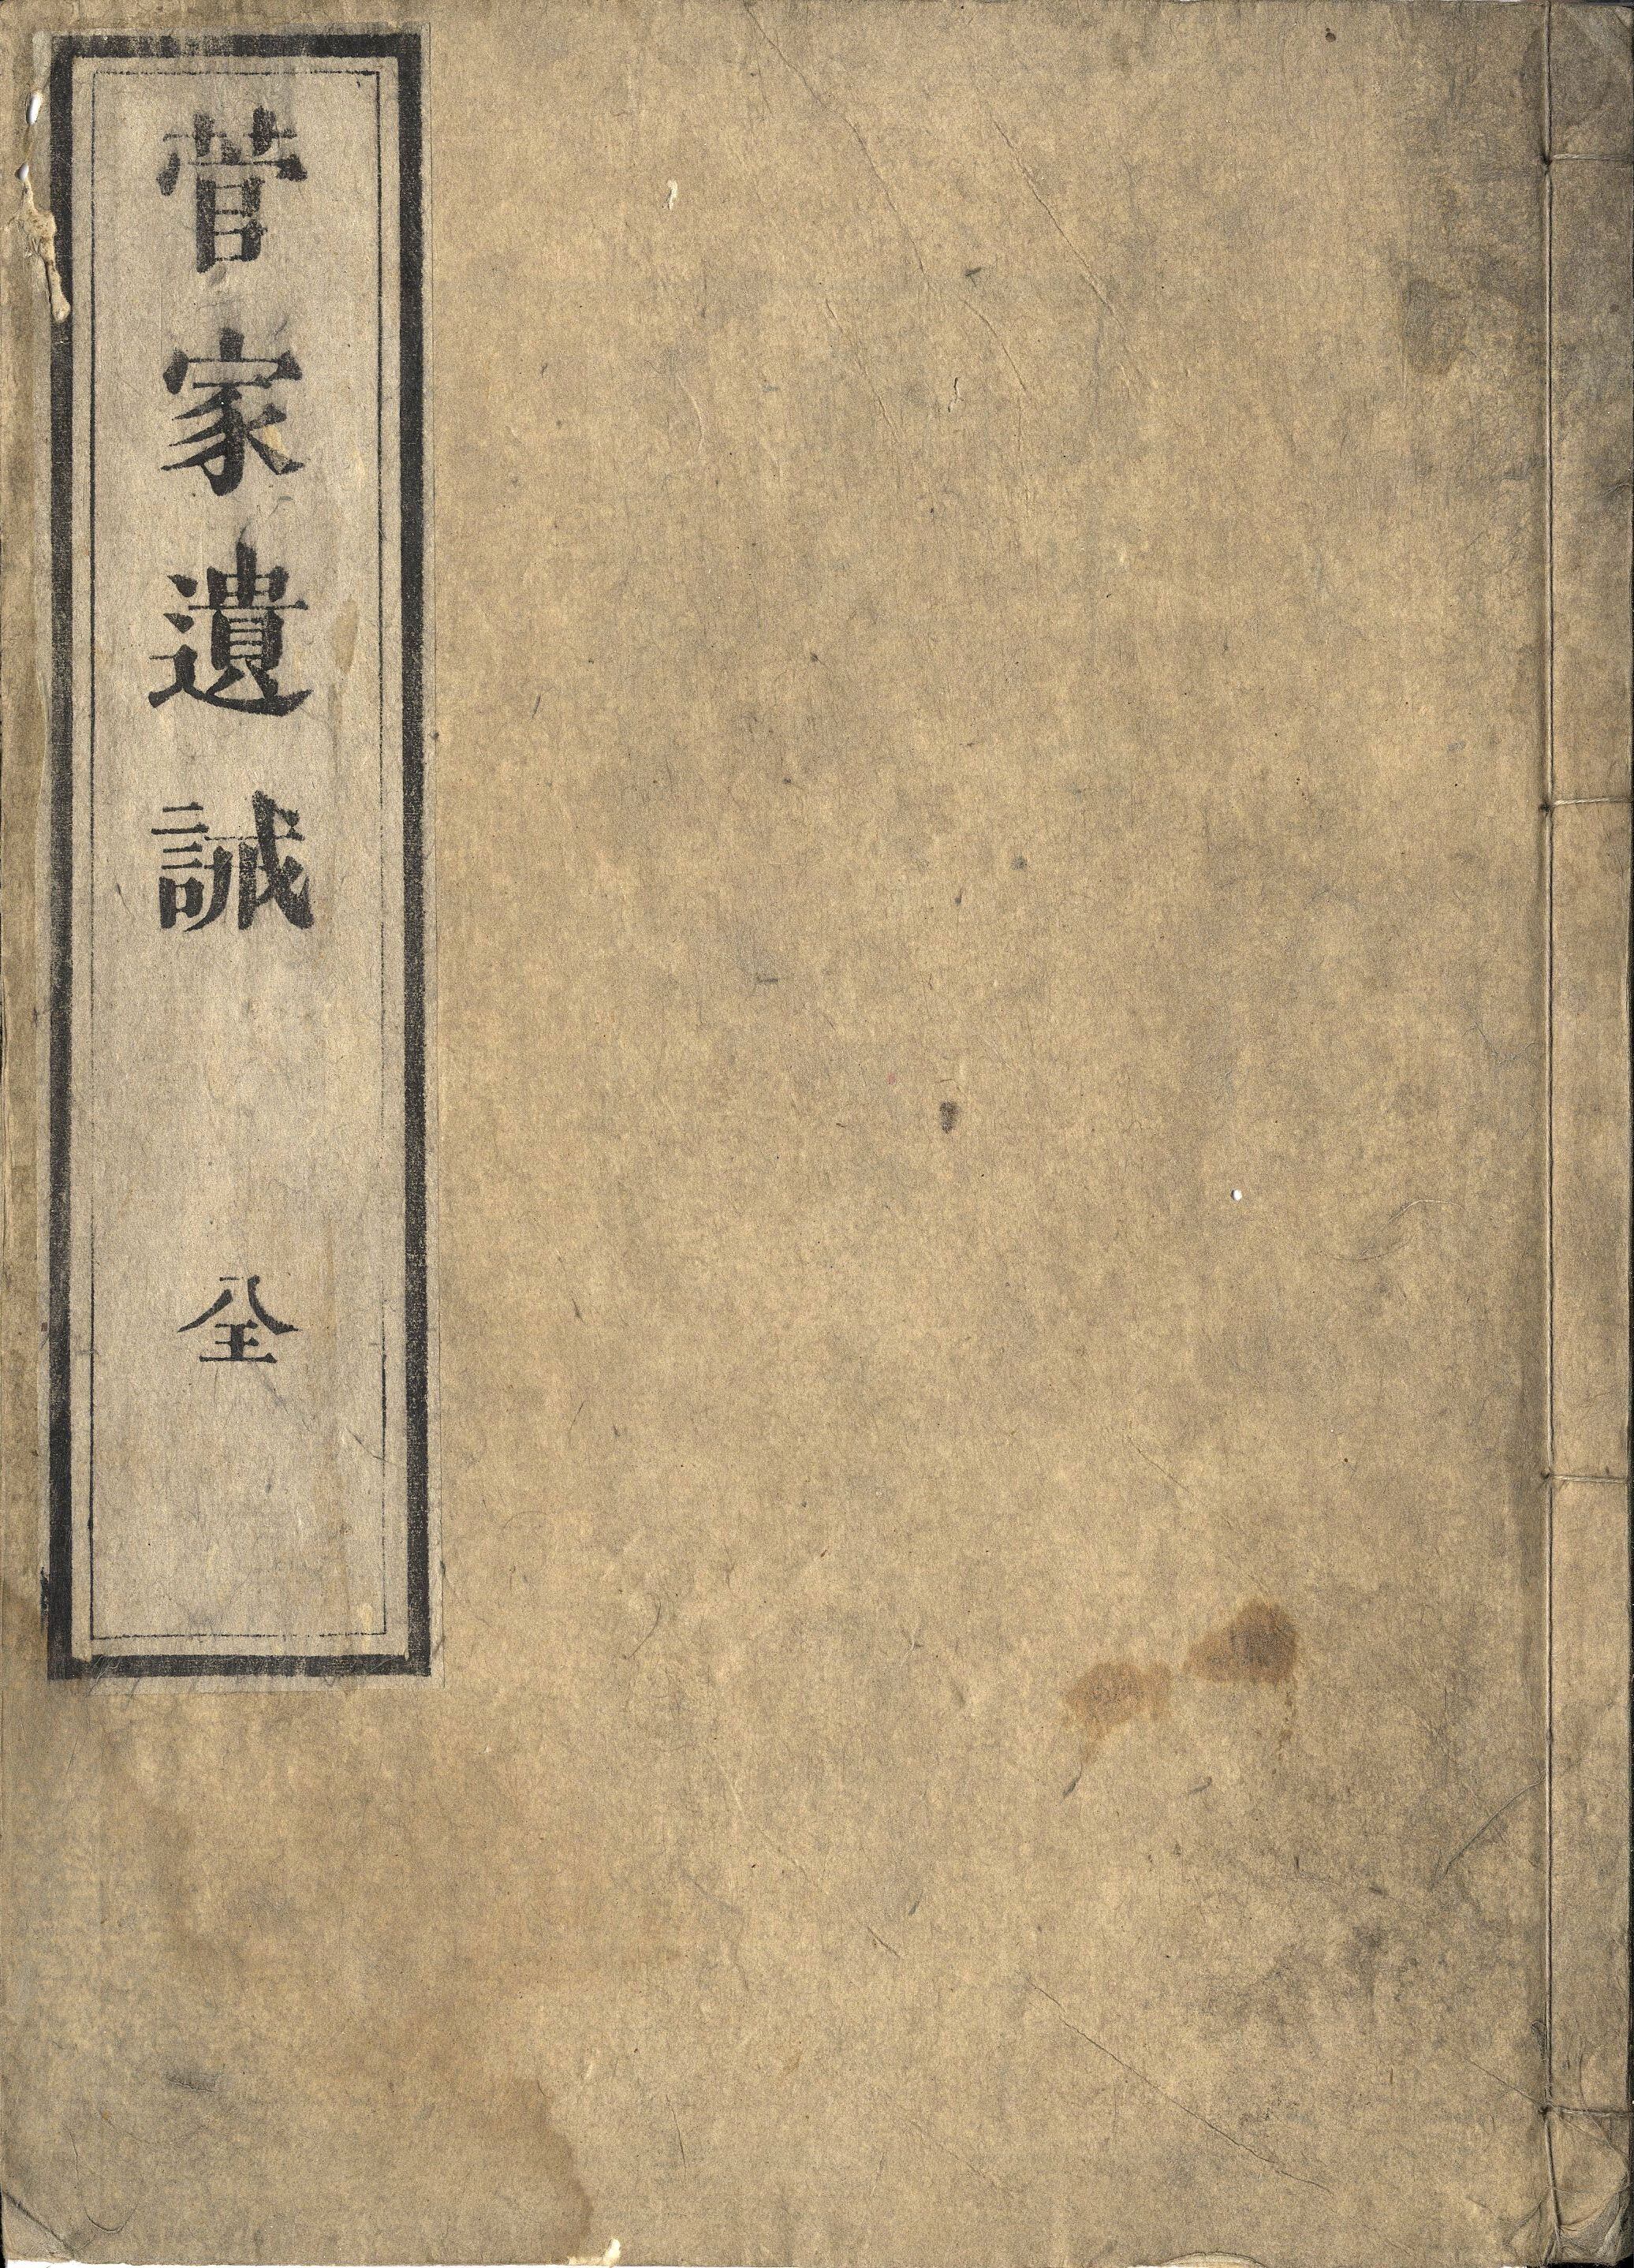 菅家遺誡 全